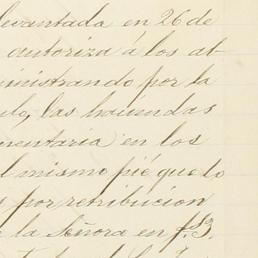 levantada en 26 de
autoriza á los al
ministrando por la
las haciendas
mentaria en los
l mismo pié que lo
por retribucion
la Señora en